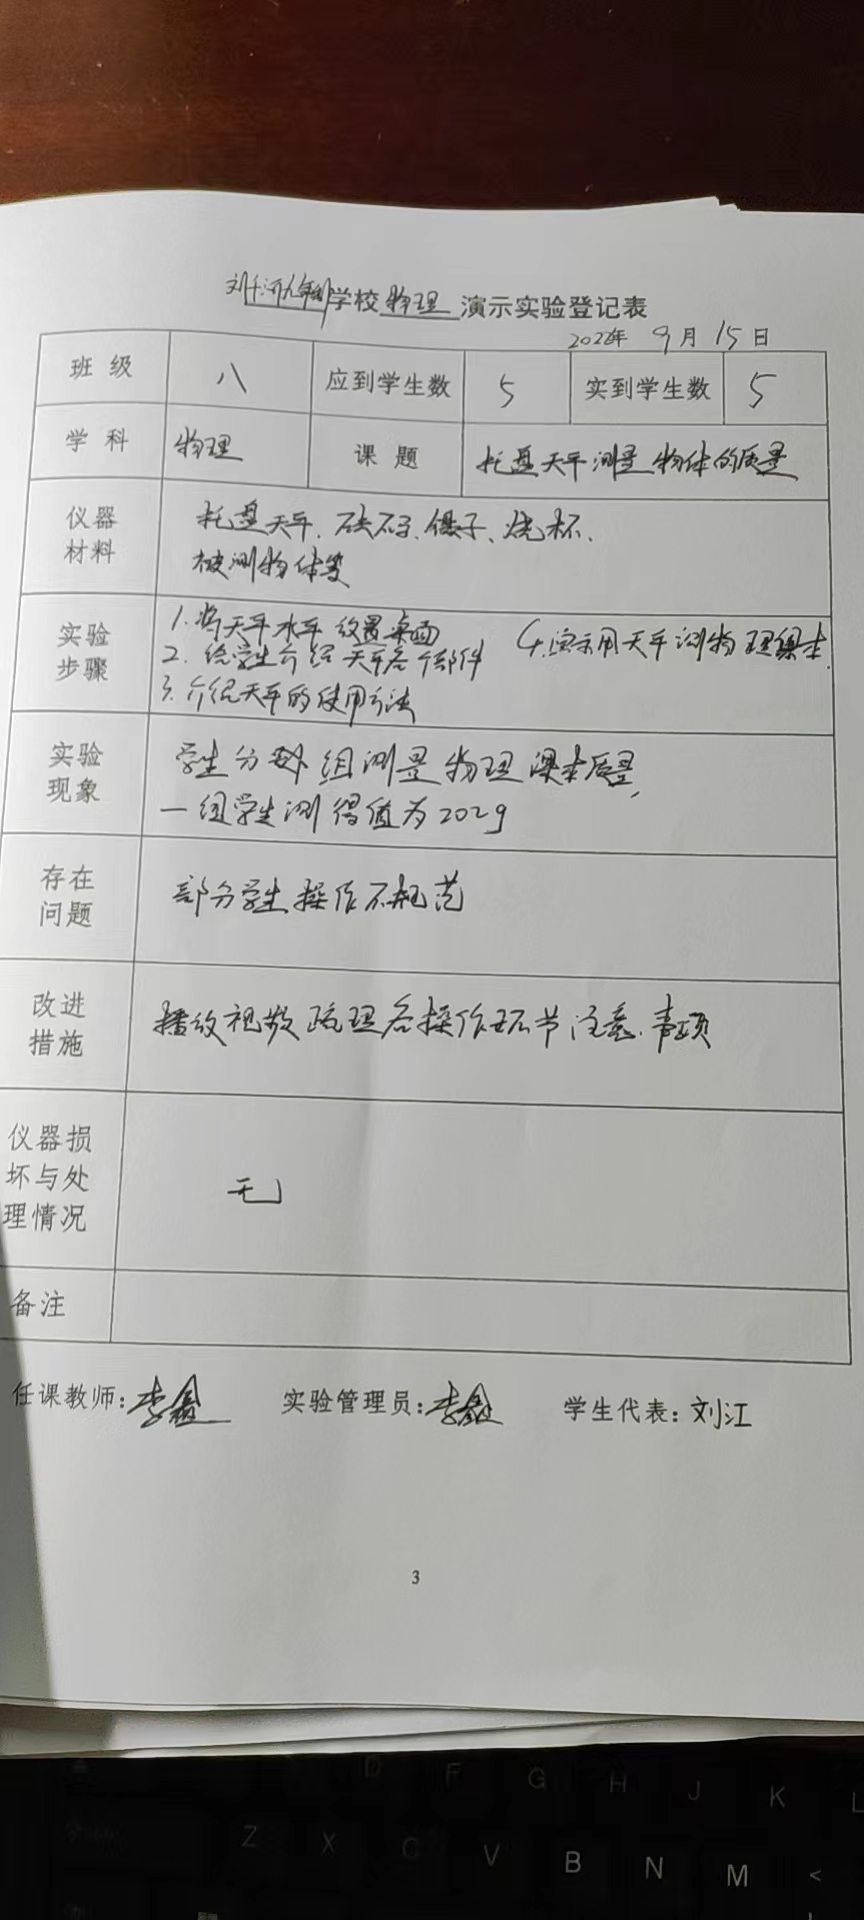 刘千河九年制学校 物理 演示实验登记表
2022年 9月 15日
班 级 八 应到学生数 5 实到学生数 5
学 科 物理 课 题 托盘天平测量物体的质量
仪器材料 托盘天平、砝码、镊子、烧杯、
被测物体等
实验步骤 1.将天平水平放置桌面
2.给学生介绍天平各个部件
3.介绍天平的使用方法
4.演示用天平测物理课本.
实验现象 学生分组测量物理课本质量,
一组学生测得值为202g
存在问题 部分学生操作不规范
改进措施 播放视频梳理各操作环节注意事项
仪器损坏与处理情况 无
备注
任课教师:李鑫 实验管理员:李鑫 学生代表:刘江
3
D F G H J K L
Z X C V B N M <